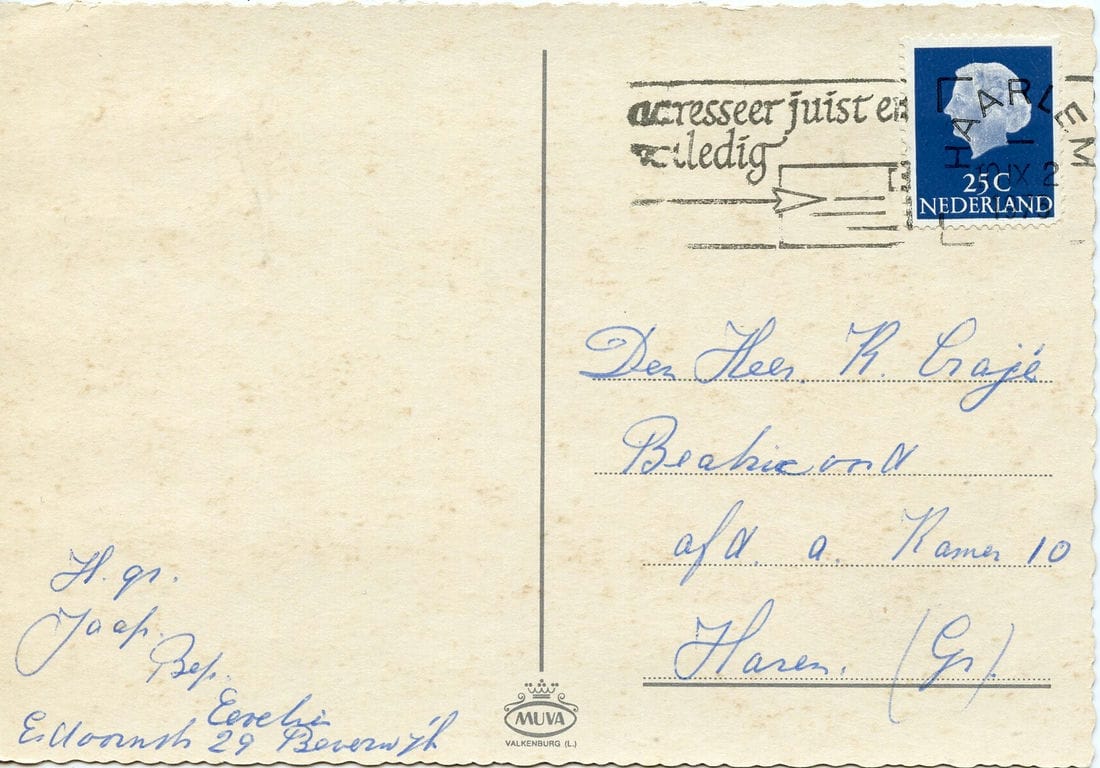 adresseer juist en
volledig
HAARLEM
25C
NEDERLAND
Den Heer. K. Crajé
Beatrixoord
afd. a. Kamer 10
Haren. (Gr).
H. gr.
Jaap.
Bep.
Evelin
Esdoornstr 29 Beverwijk
MUVA
VALKENBURG (L.)